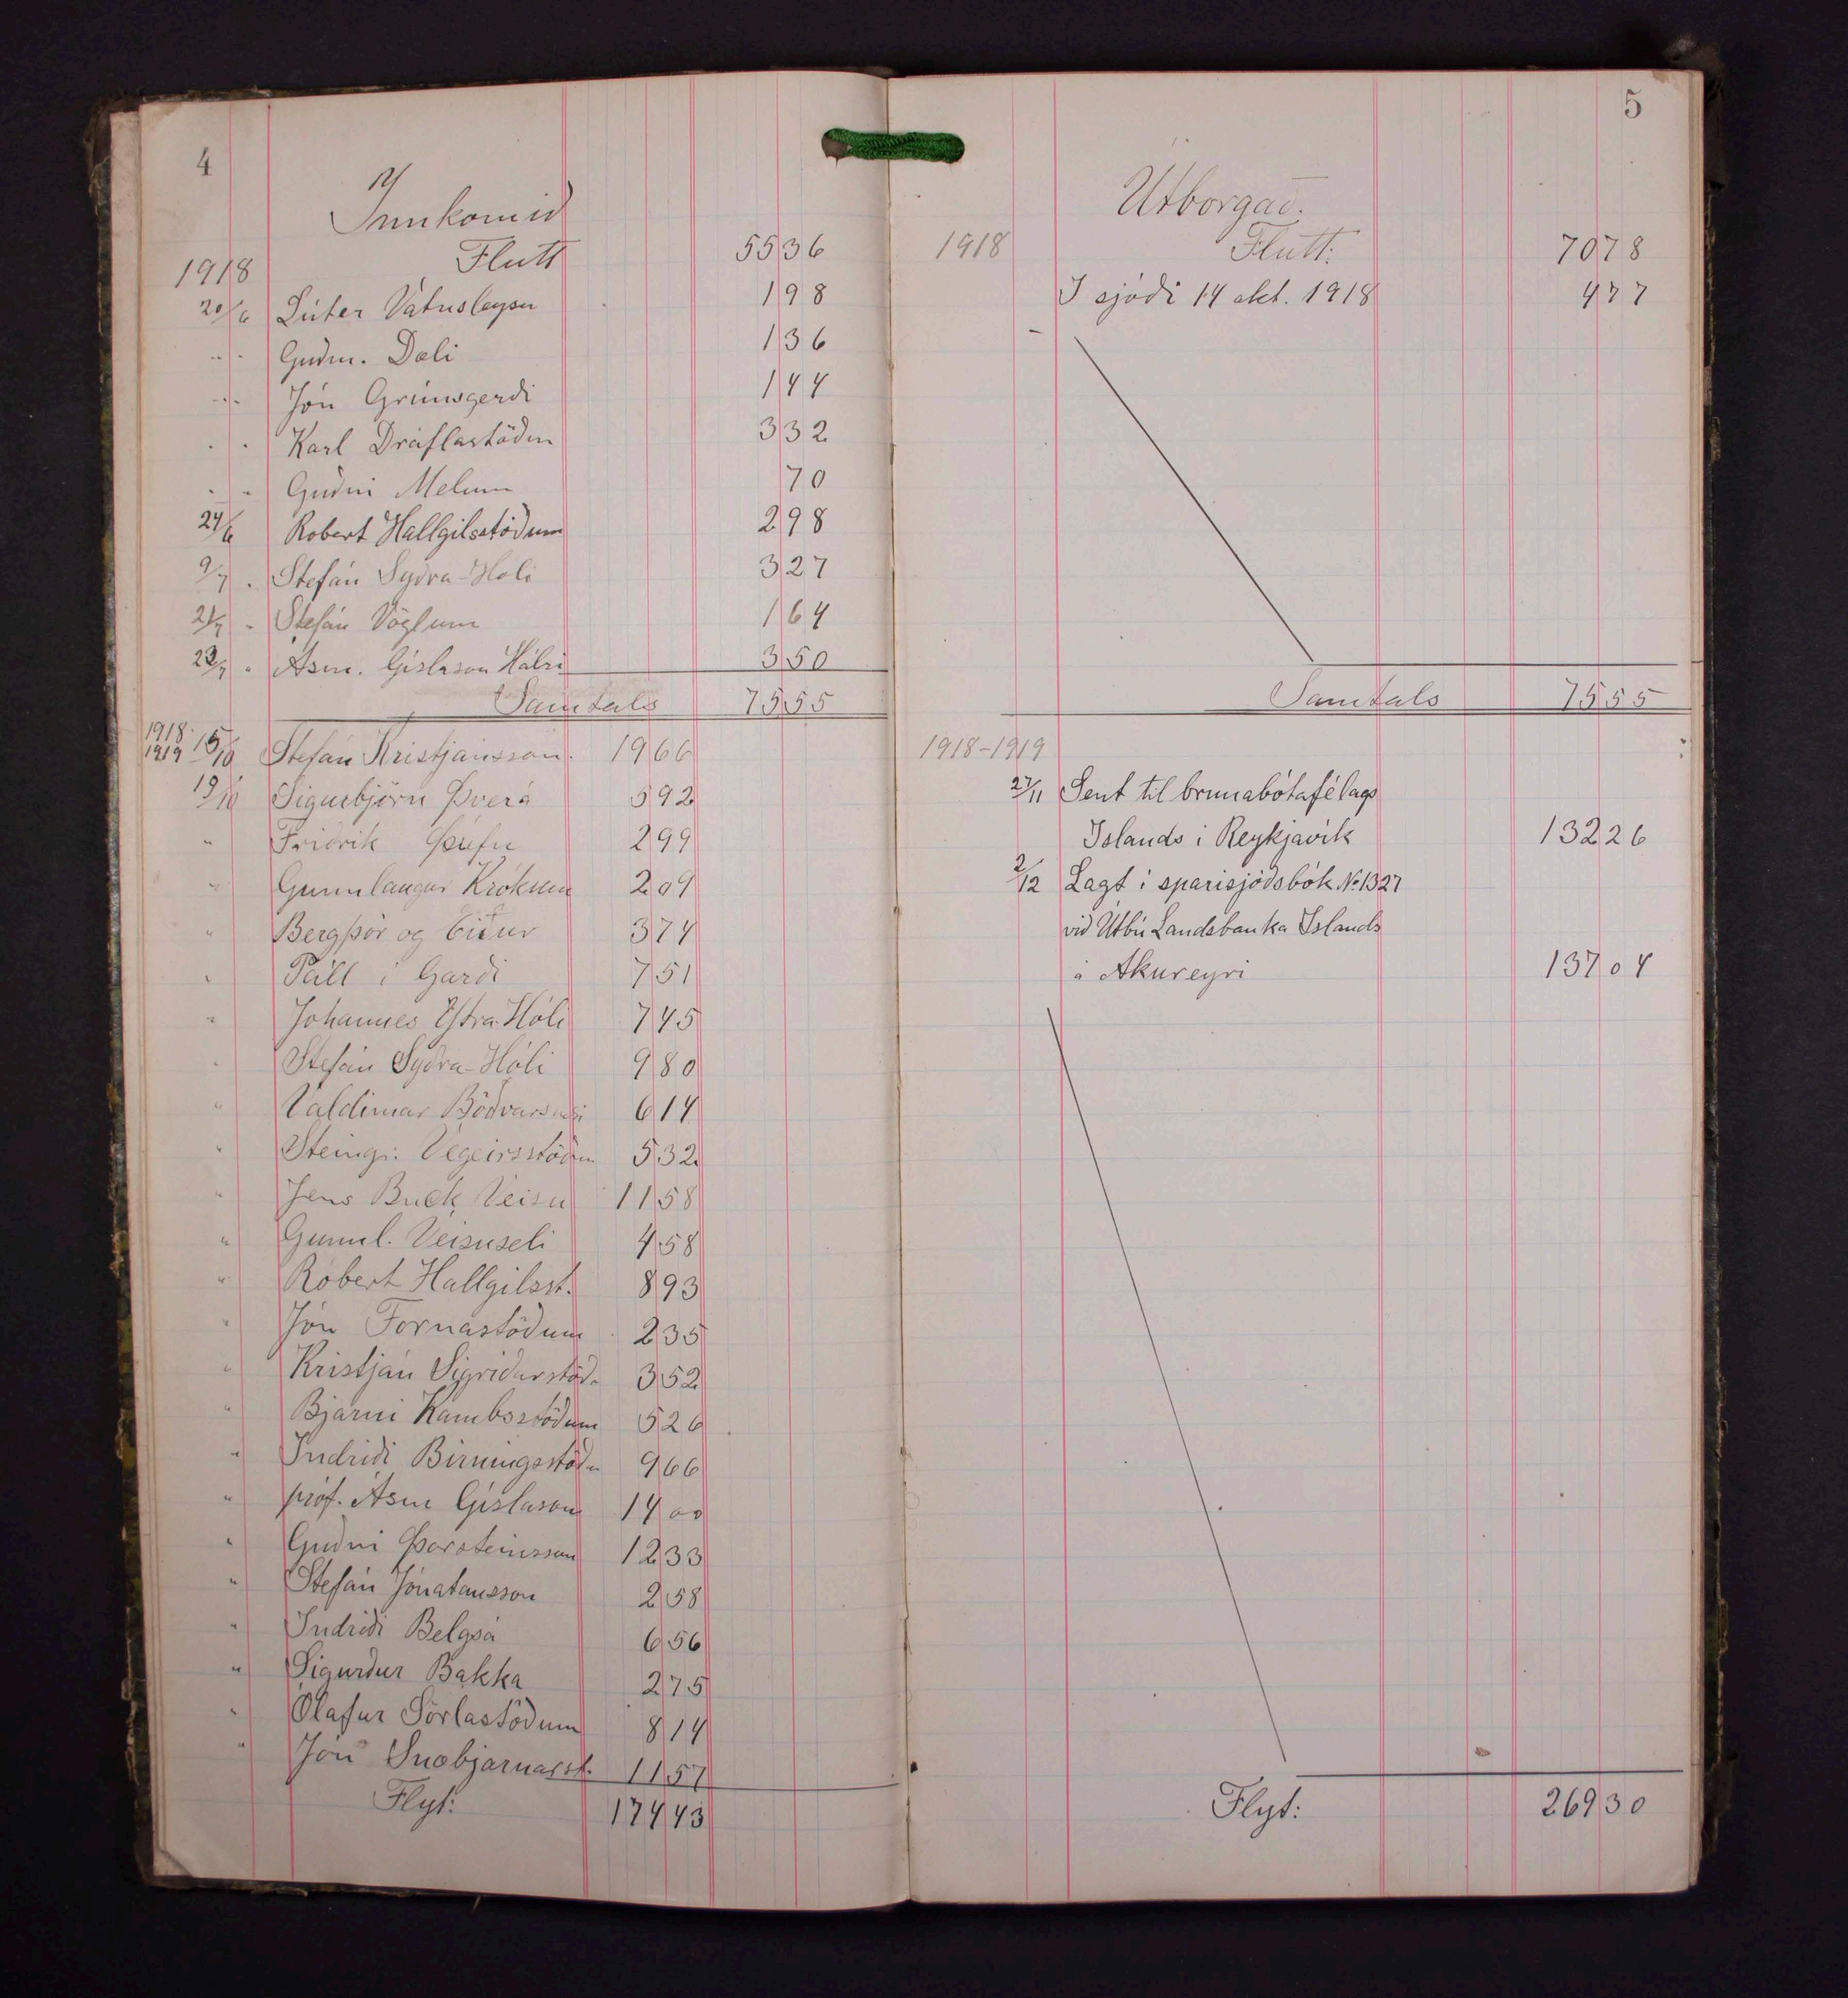 4
Innkomið
1918 Flutt 5536
20/6 Lúter Vatnsleysu 198
" " Guðm. Dæli 136
" " Jón Grímsgerði 144
" " Karl Draflastöðum 332
" " Guðni Melum 70
24/6 Robert Hallgilsstöðum 298
9/7 " Stefán Syðra-Hóli 327
21/7 " Stefán Vöglum 164
23/7 " Ásm. Gíslason Hálsi 350
Samtals 7555
1918-1919 15/10 Stefán Kristjánsson. 1966
19/10 Sigurbjörn Þverá 592
" Friðrik Þúfu 299
" Gunnlaugur Krókum 209
" Bergþór og 374
" Páll í Garði 751
" Johannes Ytra-Hóli 745
" Stefán Syðra-Hóli 980
" Valdimar Böðvarsnesi 614
" Steingr. Végeirsstöðum 532
" Jens Buck Veisu 1158
" Gunnl. Veisuseli 458
" Róbert Hallgilsst. 893
" Jón Fornastöðum 235
" Kristján Sigríðarstöð. 352
" Bjarni Kambsstöðum 526
" Indriði Birningsstöðu 966
" próf. Ásm Gíslason 1400
" Guðni Þorsteinsson 1233
" Stefán Jónatansson 258
" Indriði Belgsá 656
" Sigurður Bakka 275
" Ólafur Sörlastöðum 814
" Jón Snæbjarnarst. 1157
Flyt: 17443
5
Útborgað.
1918 Flutt: 7078
Í sjóði 14 okt. 1918 477
Samtals 7555
1918-1919
27/11 Sent til brunabótafélags
Íslands í Reykjavík 13226
2/12 Lagt í sparisjóðsbók No 1327
við Útbú Landsbanka Íslands
á Akureyri 13704
Flyt: 26930